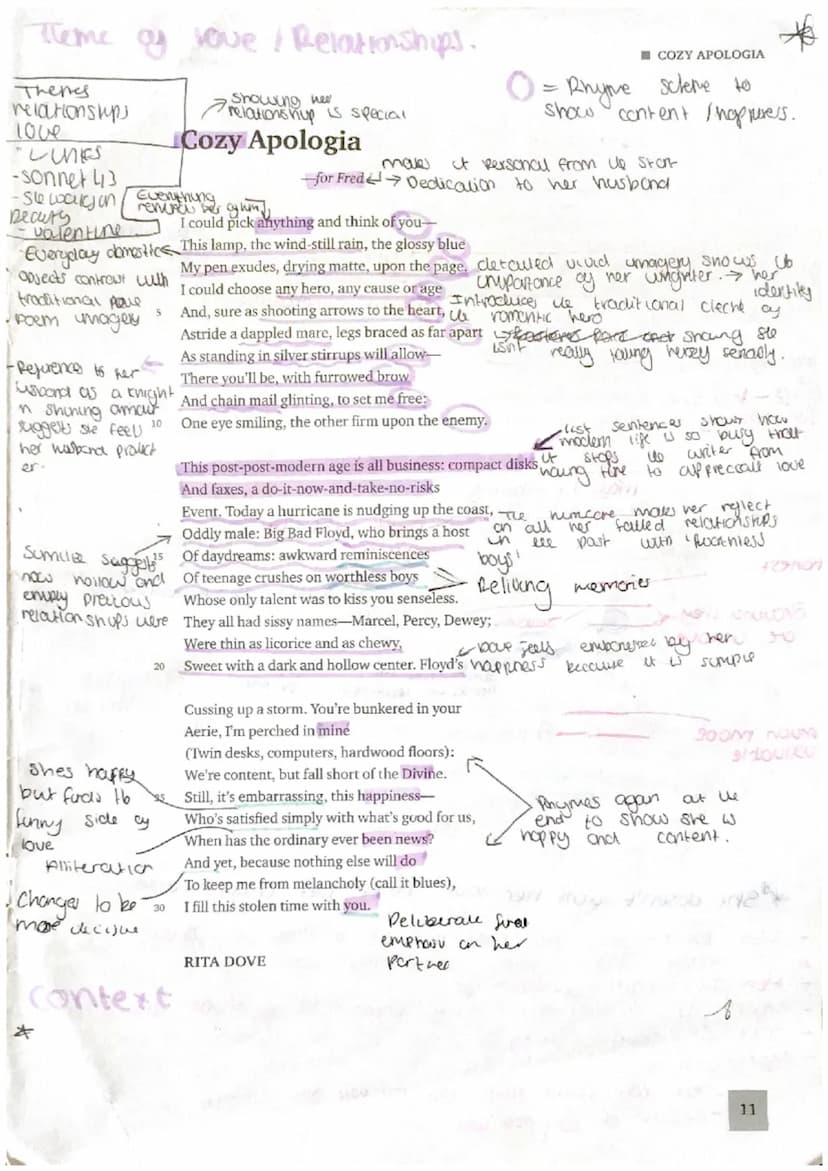 Theme of love / Relationships.
■ COZY APOLOGIA
Themes
relationships
love
- LINKS
- Sonnet 43
- She walks in
beauty
- valentine
showing her
relationship is special
= Rhyme scheme to
show content / happiness.
Cozy Apologia
—for Fred
makes it personal from the start
→ Dedication to her husband
Everything
reminds her of him
I could pick anything and think of you—
This lamp, the wind-still rain, the glossy blue
My pen exudes, drying matte, upon the page.
I could choose any hero, any cause or age
5 And, sure as shooting arrows to the heart,
Astride a dappled mare, legs braced as far apart
As standing in silver stirrups will allow—
There you'll be, with furrowed brow
And chain mail glinting, to set me free:
10 One eye smiling, the other firm upon the enemy.
- Everyday domestic
objects contrast with
traditional love
poem imagery
detailed vivid imagery shows the
importance of her → her
identity
Introduces the traditional cleche of
the romantic hero
showing she
isnt really taking herself seriously.
- Reference to her
husband as a knight
in shining amour
suggests she feels
her husband protect
er.
This post-post-modern age is all business: compact disks
And faxes, a do-it-now-and-take-no-risks
Event. Today a hurricane is nudging up the coast,
Oddly male: Big Bad Floyd, who brings a host
15 Of daydreams: awkward reminiscences
Of teenage crushes on worthless boys
Whose only talent was to kiss you senseless.
They all had sissy names—Marcel, Percy, Dewey;
Were thin as licorice and as chewy,
20 Sweet with a dark and hollow center. Floyd's
list sentences shows how
modern life is so busy that
it stops the writer from
having time to appreciate love
The hurricane makes her reflect
on all her failed relationships
in the past with 'worthless
boys'
Reliving memories
Similie suggests
how hollow and
empty previous
relationships were
Dove feels embarrassed by her
happiness because it is simple
Cussing up a storm. You're bunkered in your
Aerie, I'm perched in mine
(Twin desks, computers, hardwood floors):
We're content, but fall short of the Divine.
25 Still, it's embarrassing, this happiness—
Who's satisfied simply with what's good for us,
When has the ordinary ever been news?
And yet, because nothing else will do
To keep me from melancholy (call it blues),
30 I fill this stolen time with you.
Shes happy
but finds the
funny side of
love
Alliteration
Changes to be
more decisive
Rhymes again at the
end to show she is
happy and content.
Deliberate final
emphasis on her
partner
RITA DOVE
Context
11